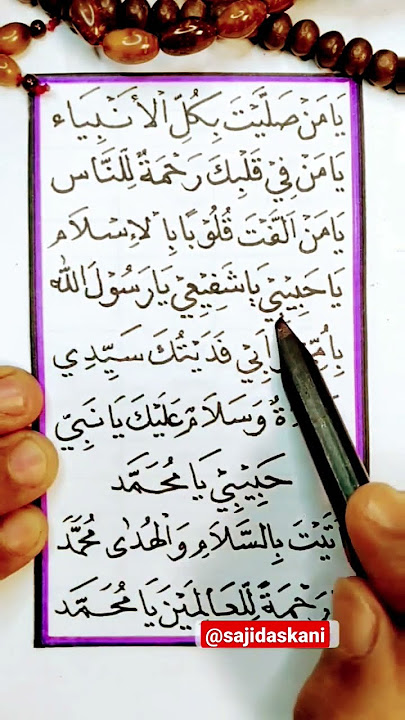 يَا مَنْ صَلَّيْتَ بِكُلِّ الْأَنْبِيَاء
يَا مَنْ فِيْ قَلْبِكَ رَحْمَةٌ لِّلنَّاس
يَا مَنْ اَلَّفْتَ قُلُوْبًا بِالْاِسْلَام
يَا حَبِيْبِيْ يَا شَفِيْعِيْ يَا رَسُوْلَ اللّٰه
بِاُمِّيْ فَدَيْتُكَ سَيِّدِي
وَسَلَامٌ عَلَيْكَ يَا نَبِيّ
حَبِيْبِيْ يَا مُحَمَّد
بِالسَّلَامِ وَالْهُدٰى مُحَمَّد
رَحْمَةً لِّلْعَالَمِيْنَ يَا مُحَمَّد
@sajidaskani